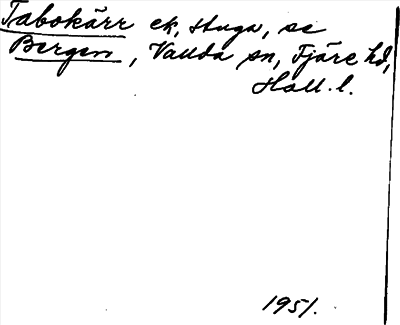 Tabokärr ek, stuga, se
Bergen, Vallda sn, Fjäre hd,
Hall. l.
1951.